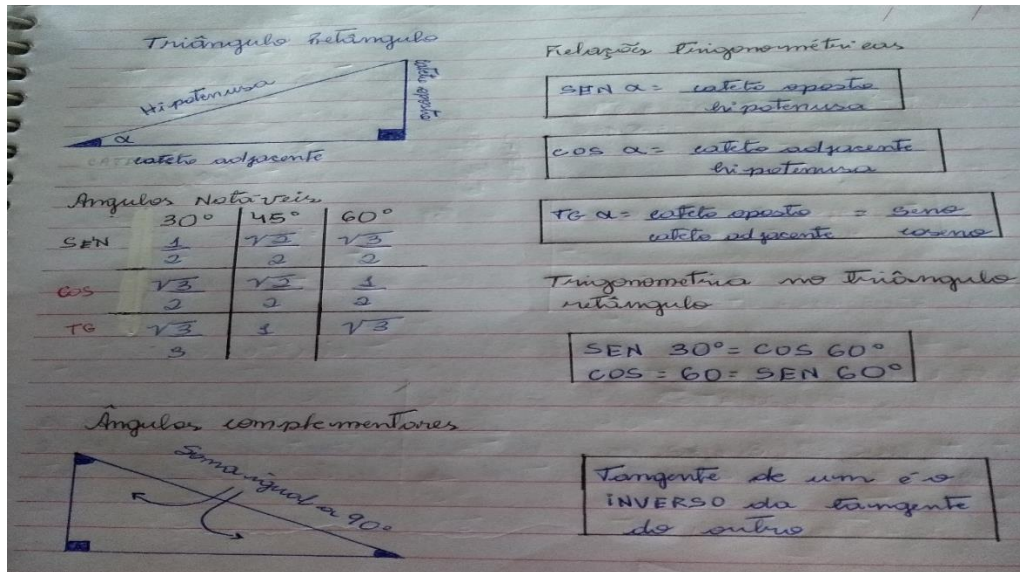 Triângulo Retângulo
Hipotenusa
cateto oposto
α
cateto adjacente
Angulos Notáveis
30° 45° 60°
SEN 1/2 √2/2 √3/2
COS √3/2 √2/2 1/2
TG √3/3 1 √3
Ângulos complementares
Soma igual a 90°
Relações trigonométricas
SEN α = cateto oposto
hipotenusa
COS α = cateto adjacente
hipotenusa
TG α = cateto oposto = seno
cateto adjacente cosseno
Trigonometria no triângulo
retângulo
SEN 30° = COS 60°
COS = 60 = SEN 60°
Tangente de um é o
INVERSO da tangente
do outro